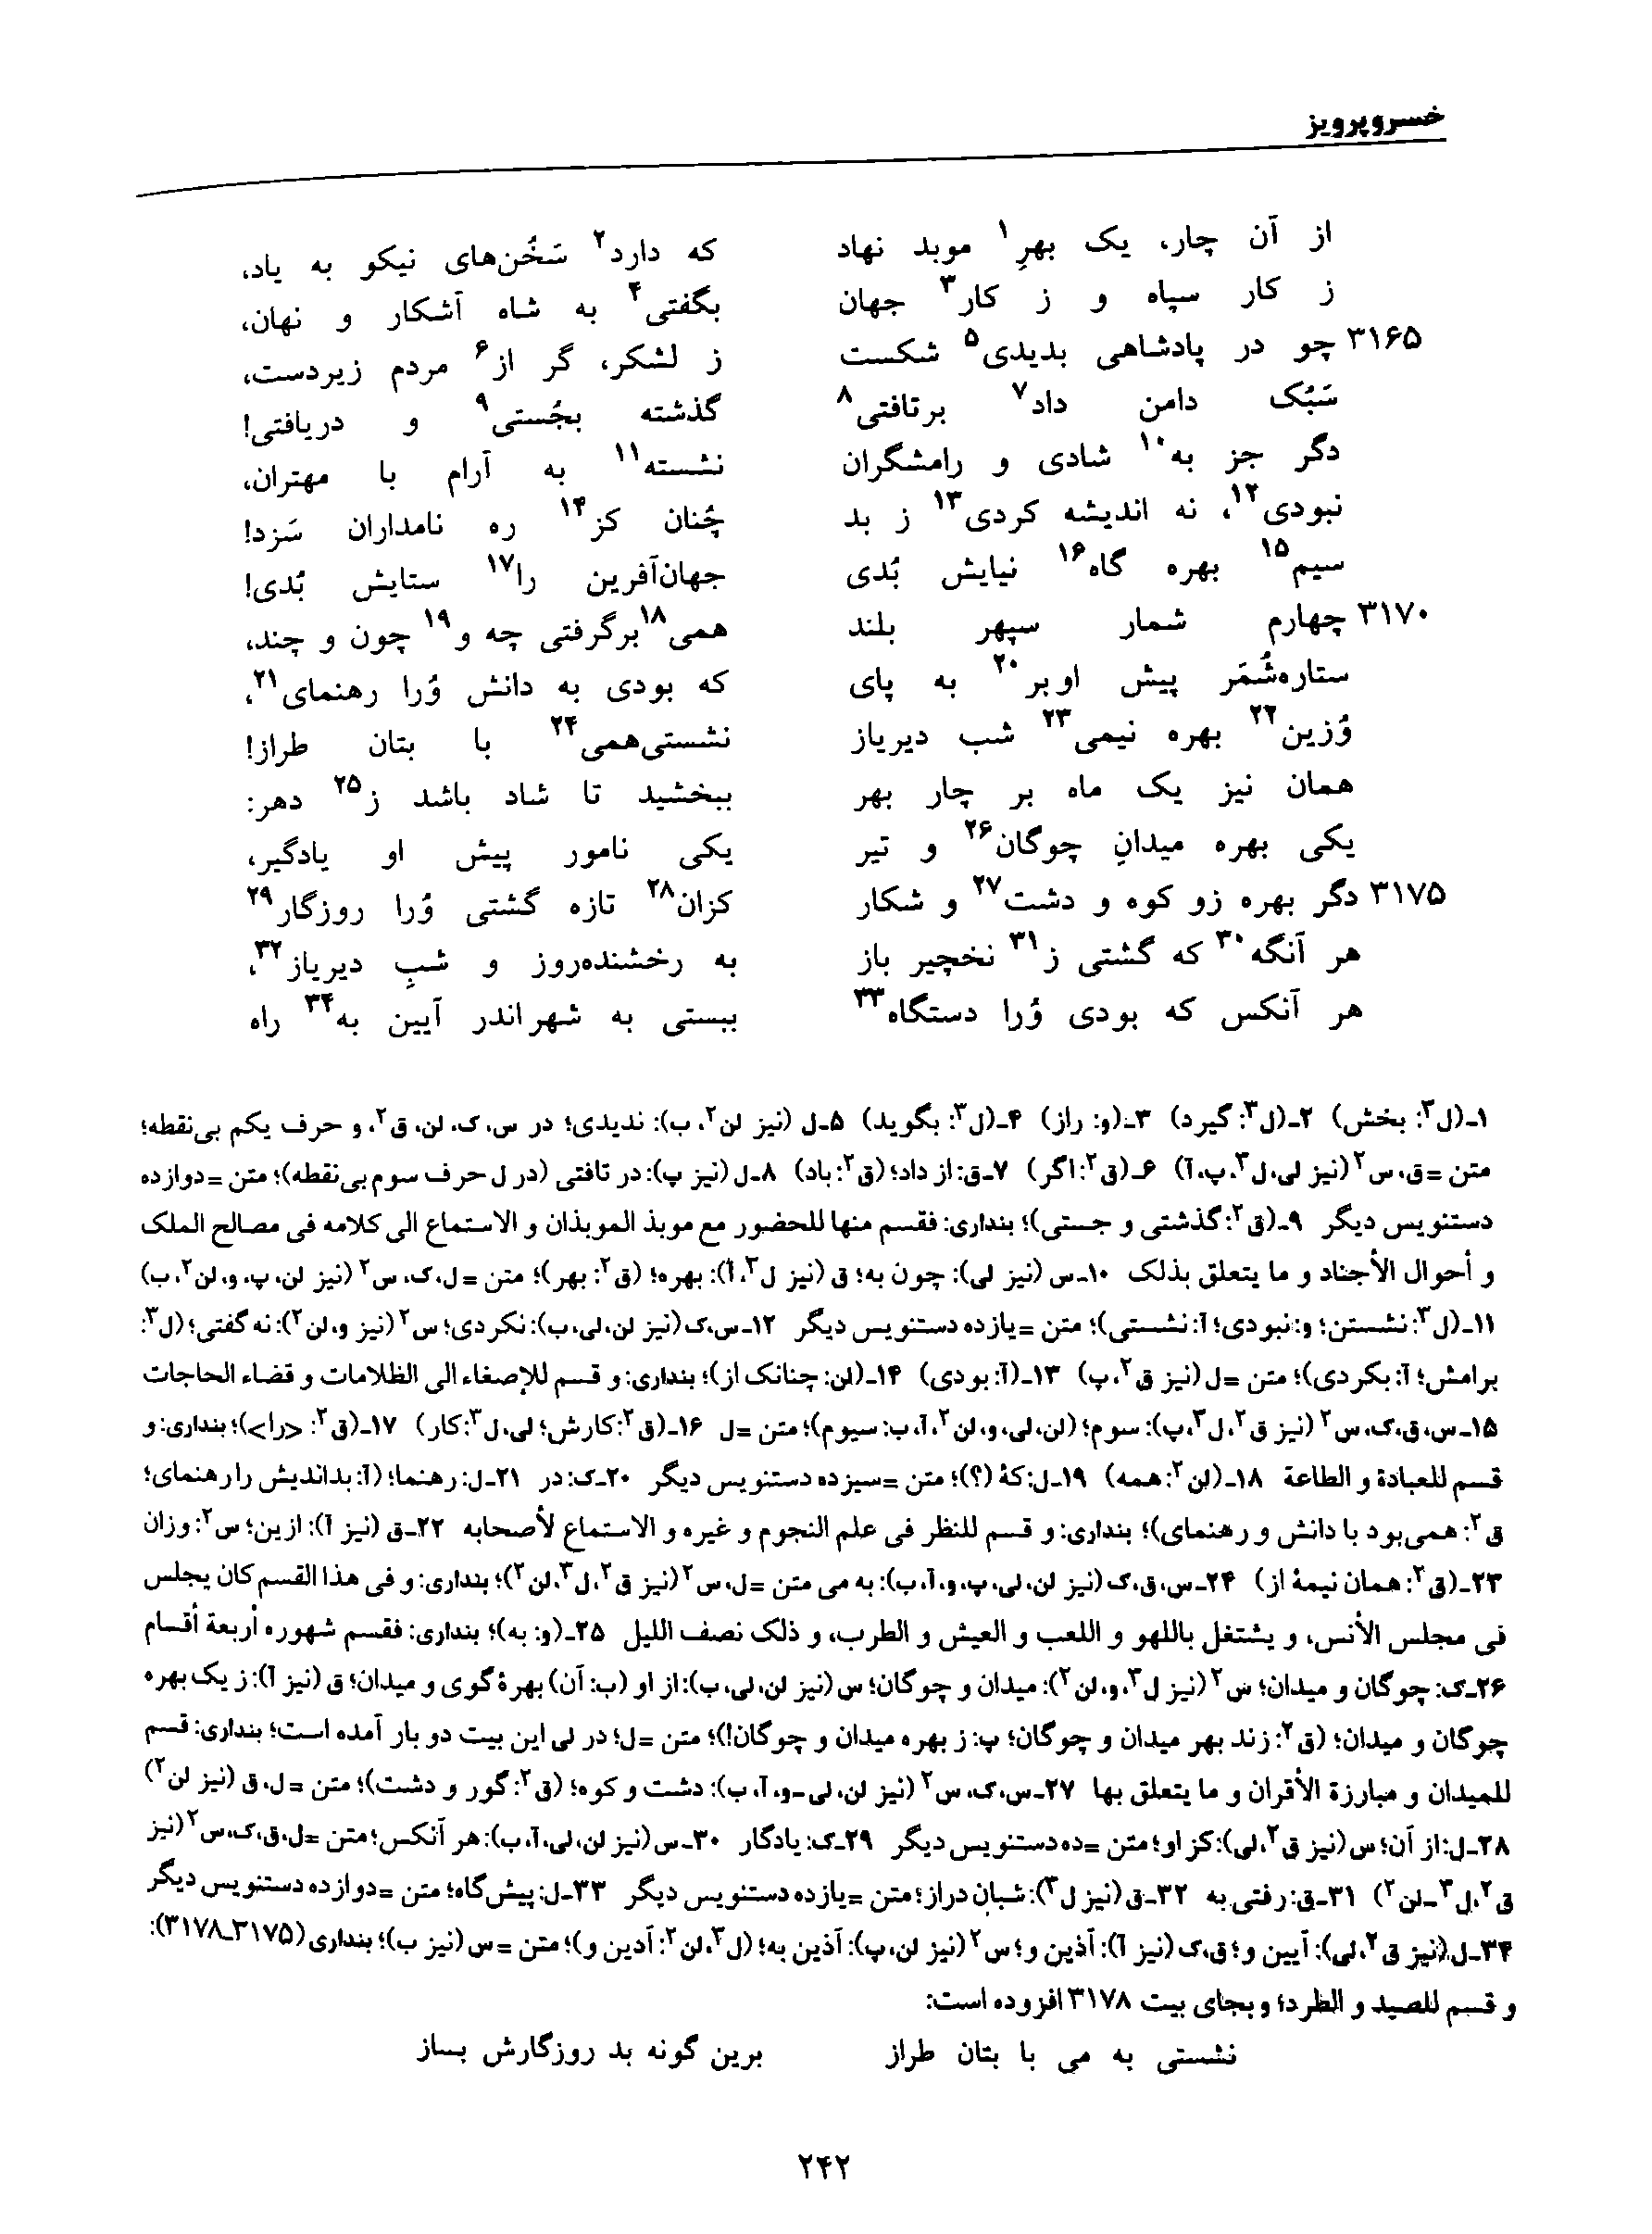 خسروپرویز
از آن چار، یک بهرِ۱ موبد نهاد که دارد۲ سَخُن‌های نیکو به یاد،
ز کار سپاه و ز کار۳ جهان بگفتی۴ به شاه آشکار و نهان،
۳۱۶۵ چو در پادشاهی بدیدی۵ شکست ز لشکر، گر از۶ مردم زیردست،
سَبُک دامن داد۷ برتافتی۸ گذشته بجُستی۹ و دریافتی!
دگر جز به۱۰ شادی و رامشگران نشسته۱۱ به آرام با مهتران،
نبودی۱۲، نه اندیشه کردی۱۳ ز بد چُنان کز۱۴ ره نامداران سَزد!
سیم۱۵ بهره گاه۱۶ نیایش بُدی جهان‌آفرین را۱۷ ستایش بُدی!
۳۱۷۰ چهارم شمار سپهر بلند همی۱۸برگرفتی چه و۱۹ چون و چند،
ستاره‌شُمَر پیش اوبر۲۰ به پای که بودی به دانش وُرا رهنمای۲۱،
وُزین۲۲ بهره نیمی۲۳ شب دیریاز نشستی‌همی۲۴ با بتان طراز!
همان نیز یک ماه بر چار بهر ببخشید تا شاد باشد ز۲۵ دهر:
یکی بهره میدانِ چوگان۲۶ و تیر یکی نامور پیش او یادگیر،
۳۱۷۵ دگر بهره زو کوه و دشت۲۷ و شکار کزان۲۸ تازه گشتی وُرا روزگار۲۹
هر آنگه۳۰ که گشتی ز۳۱ نخچیر باز به رخشنده‌روز و شبِ دیریاز۳۲،
هر آنکس که بودی وُرا دستگاه۳۳ ببستی به شهراندر آیین به۳۴ راه
۱ـ(ل۳: بخش) ۲ـ(ل۳: گیرد) ۳ـ(و: راز) ۴ـ(ل۳: بگوید) ۵ـل (نیز لن۲، ب): ندیدی؛ در س، ک، لن، ق۲، و حرف یکم بی‌نقطه؛
متن =ق، س۲ (نیز لی، ل۳، پ، آ) ۶ـ(ق۲: اگر) ۷ـق: از داد؛ (ق۲: باد) ۸ـل (نیز پ): در تافتی (در ل حرف سوم بی‌نقطه)؛ متن =دوازده
دستنویس دیگر ۹ـ(ق۲: گذشتی و جستی)؛ بنداری: فقسم منها للحضور مع موبذ الموبذان و الاستماع الی کلامه فی مصالح الملک
و أحوال الأجناد و ما یتعلق بذلک ۱۰ـس (نیز لی): چون به؛ ق (نیز ل۳، آ): بهره؛ (ق۲: بهر)؛ متن =ل، ک، س۲ (نیز لن، پ، و، لن۲، ب)
۱۱ـ(ل۳: نشستن؛ و: نبودی؛ آ: نشستی)؛ متن =یازده دستنویس دیگر ۱۲ـس، ک (نیز لن، لی، ب): نکردی؛ س۲ (نیز و، لن۲): نه گفتی؛ (ل۳:
برامش؛ آ: بکردی)؛ متن =ل (نیز ق۲، پ) ۱۳ـ(آ: بودی) ۱۴ـ(لن: چنانک از)؛ بنداری: و قسم للإصغاء الی الظلامات و قضاء الحاجات
۱۵ـس، ق، ک، س۲ (نیز ق۲، ل۳، پ): سوم؛ (لن، لی، و، لن۲، آ، ب: سیوم)؛ متن =ل ۱۶ـ(ق۲: کارش؛ لی، ل۳: کار) ۱۷ـ(ق۲: <را>)؛ بنداری: و
قسم للعبادة و الطاعة ۱۸ـ(لن۲: همه) ۱۹ـل: کهٔ (؟)؛ متن =سیزده دستنویس دیگر ۲۰ـک: در ۲۱ـل: رهنما؛ (آ: بداندیش را رهنمای؛
ق۲: همی‌بود با دانش و رهنمای)؛ بنداری: و قسم للنظر فی علم النجوم و غیره و الاستماع لأصحابه ۲۲ـق (نیز آ): ازین؛ س۲: وزان
۲۳ـ(ق۲: همان نیمهٔ از) ۲۴ـس، ق، ک (نیز لن، لی، پ، و، آ، ب): به می متن =ل، س۲ (نیز ق۲، ل۳، لن۲)؛ بنداری: و فی هذا القسم کان یجلس
فی مجلس الأنس، و یشتغل باللهو و اللعب و العیش و الطرب، و ذلک نصف اللیل ۲۵ـ(و: به)؛ بنداری: فقسم شهوره أربعة أقسام
۲۶ـک: چوگان و میدان؛ س۲ (نیز ل۳، و، لن۲): میدان و چوگان؛ س (نیز لن، لی، ب): از او (ب: آن) بهرهٔ گوی و میدان؛ ق (نیز آ): ز یک بهره
چوگان و میدان؛ (ق۲: زند بهر میدان و چوگان؛ پ: ز بهره میدان و چوگان!)؛ متن =ل؛ در لی این بیت دو بار آمده است؛ بنداری: قسم
للمیدان و مبارزة الأقران و ما یتعلق بها ۲۷ـس، ک، س۲ (نیز لن، لی-و، آ، ب): دشت و کوه؛ (ق۲: گور و دشت)؛ متن =ل، ق (نیز لن۲)
۲۸ـل: از آن؛ س (نیز ق۲، لی): کز او؛ متن =ده دستنویس دیگر ۲۹ـک: یادگار ۳۰ـس (نیز لن، لی، آ، ب): هر آنکس؛ متن =ل، ق، ک، س۲ (نیز
ق۲، ل۳ـلن۲) ۳۱ـق: رفتی به ۳۲ـق (نیز ل۳): شبان دراز؛ متن =یازده دستنویس دیگر ۳۳ـل: پیش‌گاه؛ متن =دوازده دستنویس دیگر
۳۴ـل (نیز ق۲، لی): آیین و؛ ق، ک (نیز آ): آذین و؛ س۲ (نیز لن، پ): آذین به؛ (ل۳، لن۲: آدین و)؛ متن =س (نیز ب)؛ بنداری (۳۱۷۵ـ۳۱۷۸):
و قسم للصید و الطرد؛ و بجای بیت ۳۱۷۸ افزوده است:
نشستی به می با بتان طراز برین گونه بد روزگارش بساز
۲۴۲